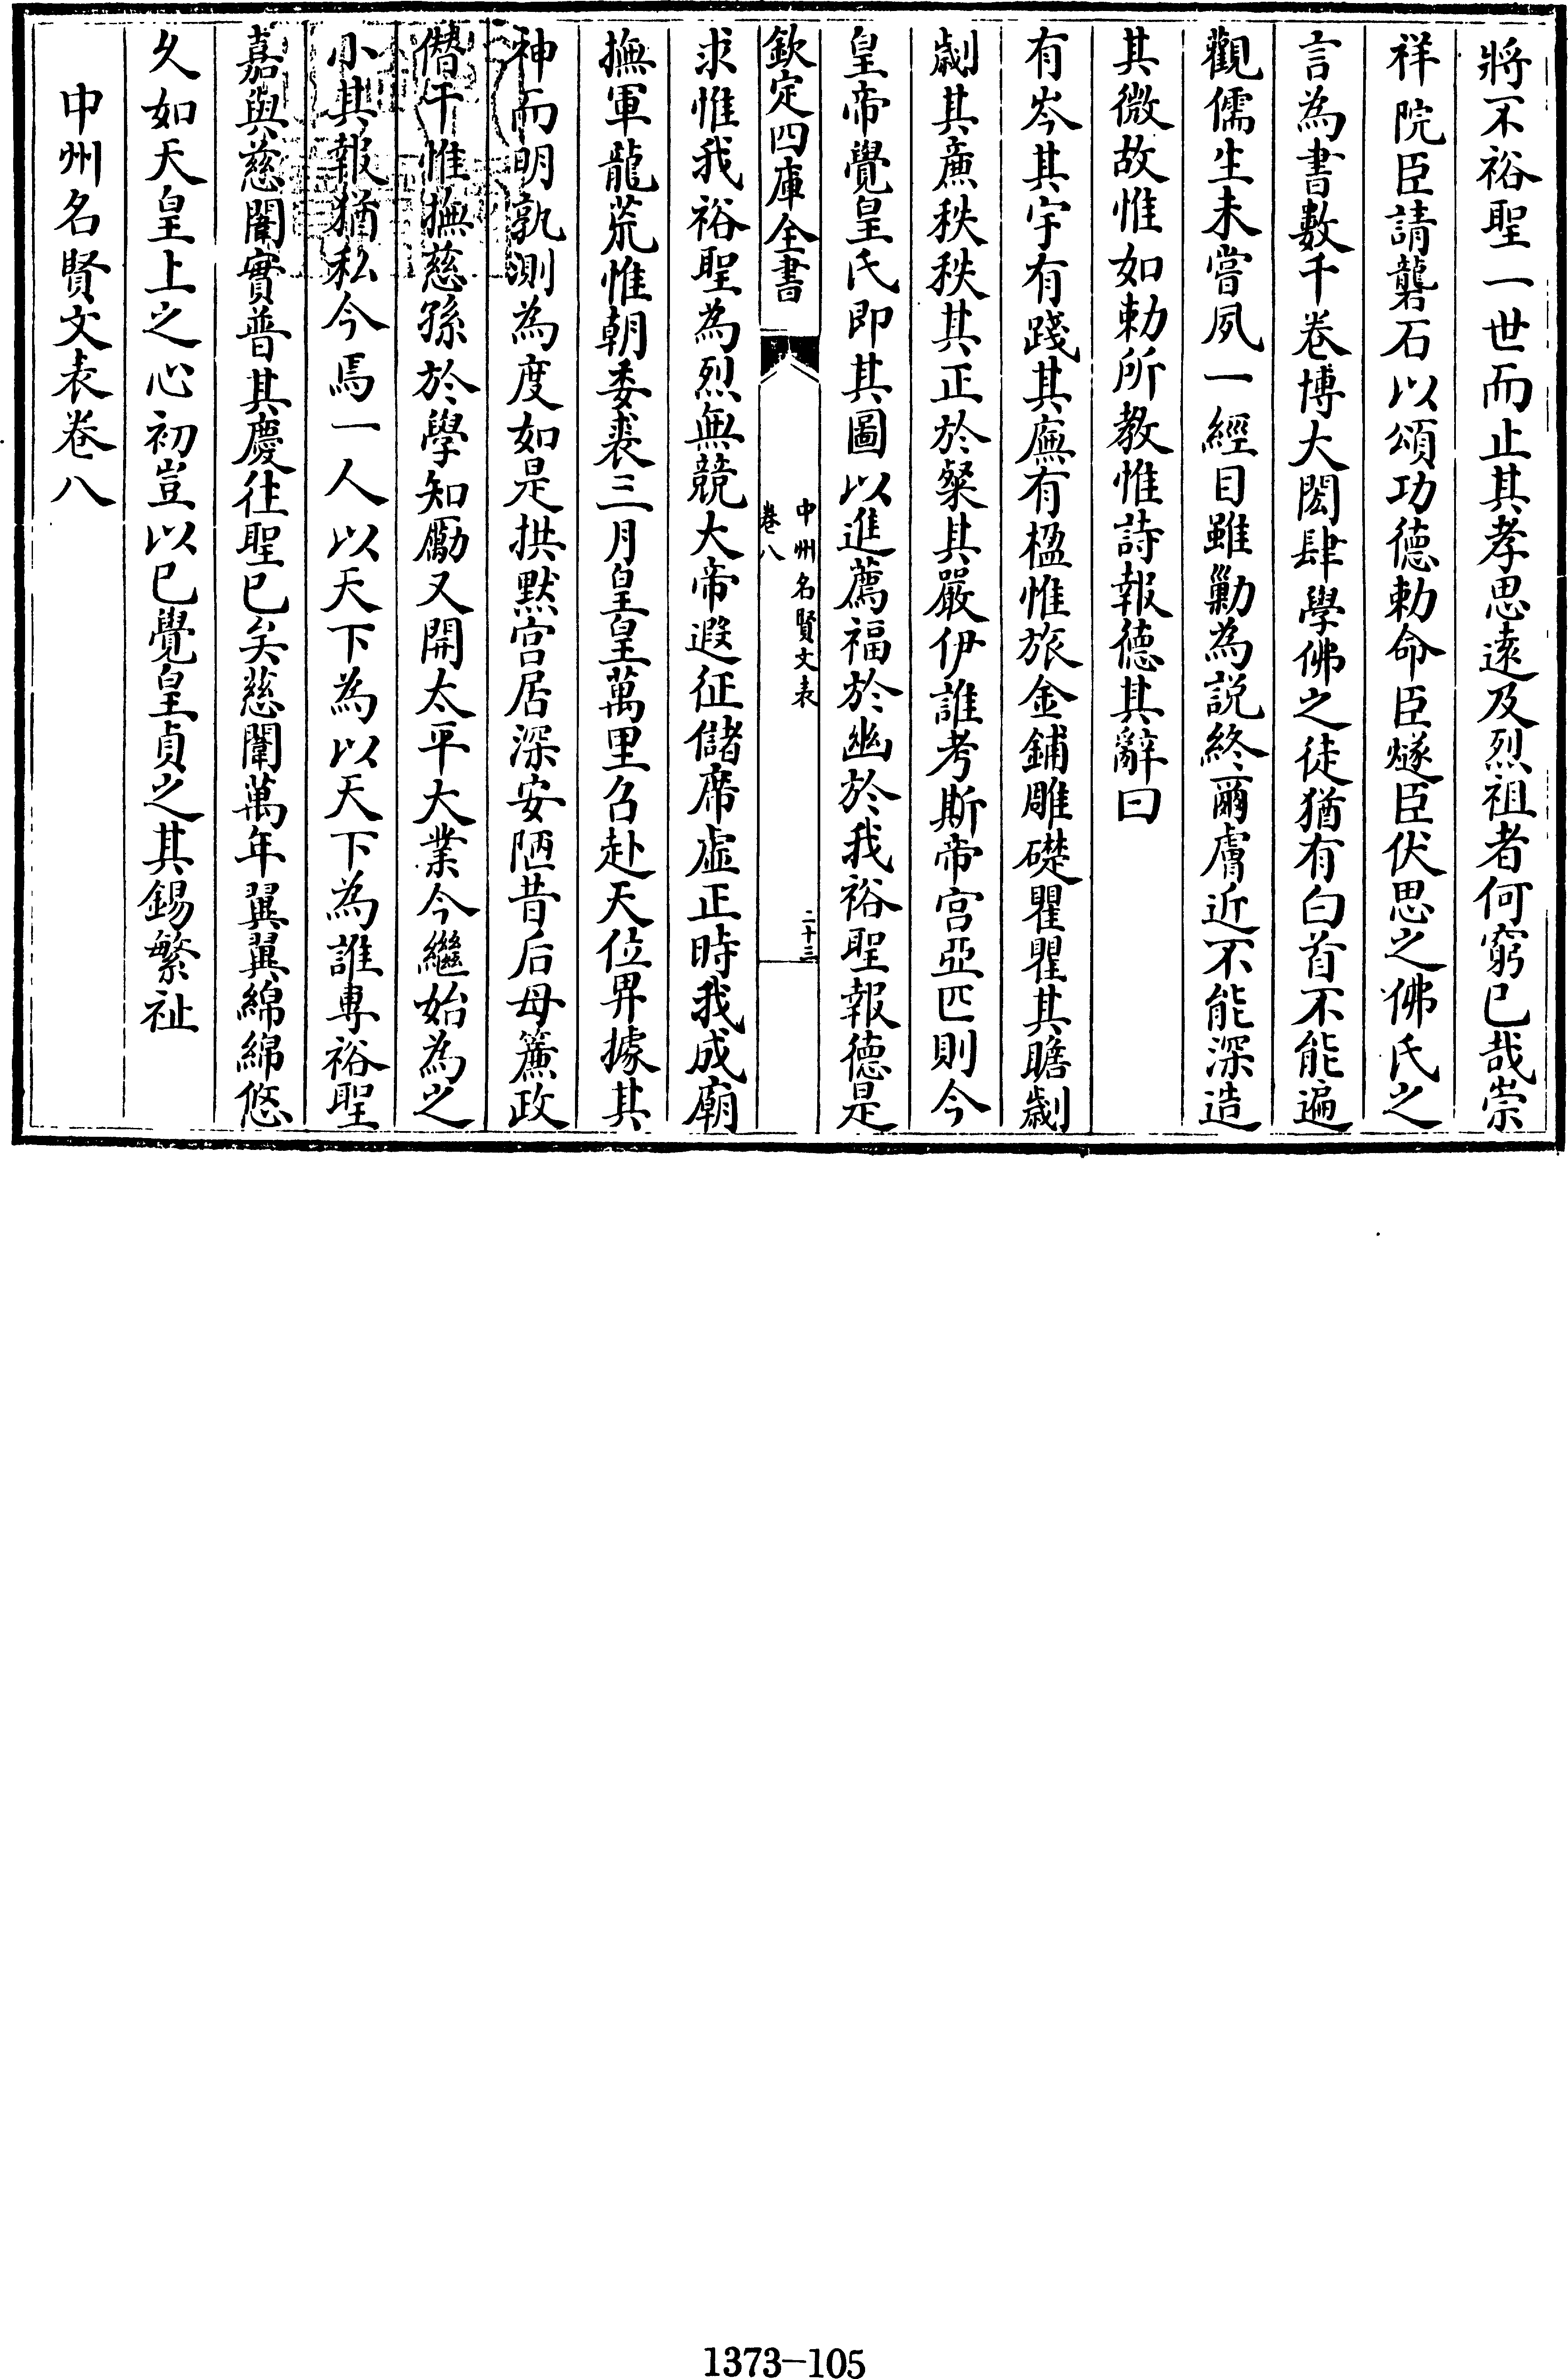 將不裕聖一世而止其孝思逺及烈祖者何窮已哉崇
祥院臣請礱石以頌功德勅命臣燧臣伏思之佛氏之
言為書數千卷博大閎肆學佛之徒猶有白首不能遍
觀儒生未嘗夙一經目雖勦為説終爾膚近不能深造
其微故惟如勅所教惟詩報德其辭曰
有岑其宇有踐其廡有楹惟旅金鋪雕礎瞿瞿其瞻劌
劌其亷秩秩其正於粲其嚴伊誰考斯帝宫亞匹則今
皇帝覺皇氏即其圖以進薦福於幽於我裕聖報德是
欽定四庫全書
中州名賢文表
卷八
二十三
求惟我裕聖為烈無競大帝遐征儲席虚正時我成廟
撫軍龍荒惟朝委裘三月皇皇萬里召赴天位畀據其
神而明孰測為度如是拱黙宫居深安陋昔后母簾政
僭干惟撫慈孫於學知勵又開太平大業今繼始為之
小其報猶私今焉一人以天下為以天下為誰專裕聖
嘉與慈闈實普其慶往聖已矣慈闈萬年翼翼綿綿悠
久如天皇上之心初豈以已覺皇貞之其錫繁祉
中州名賢文表卷八
1373-105